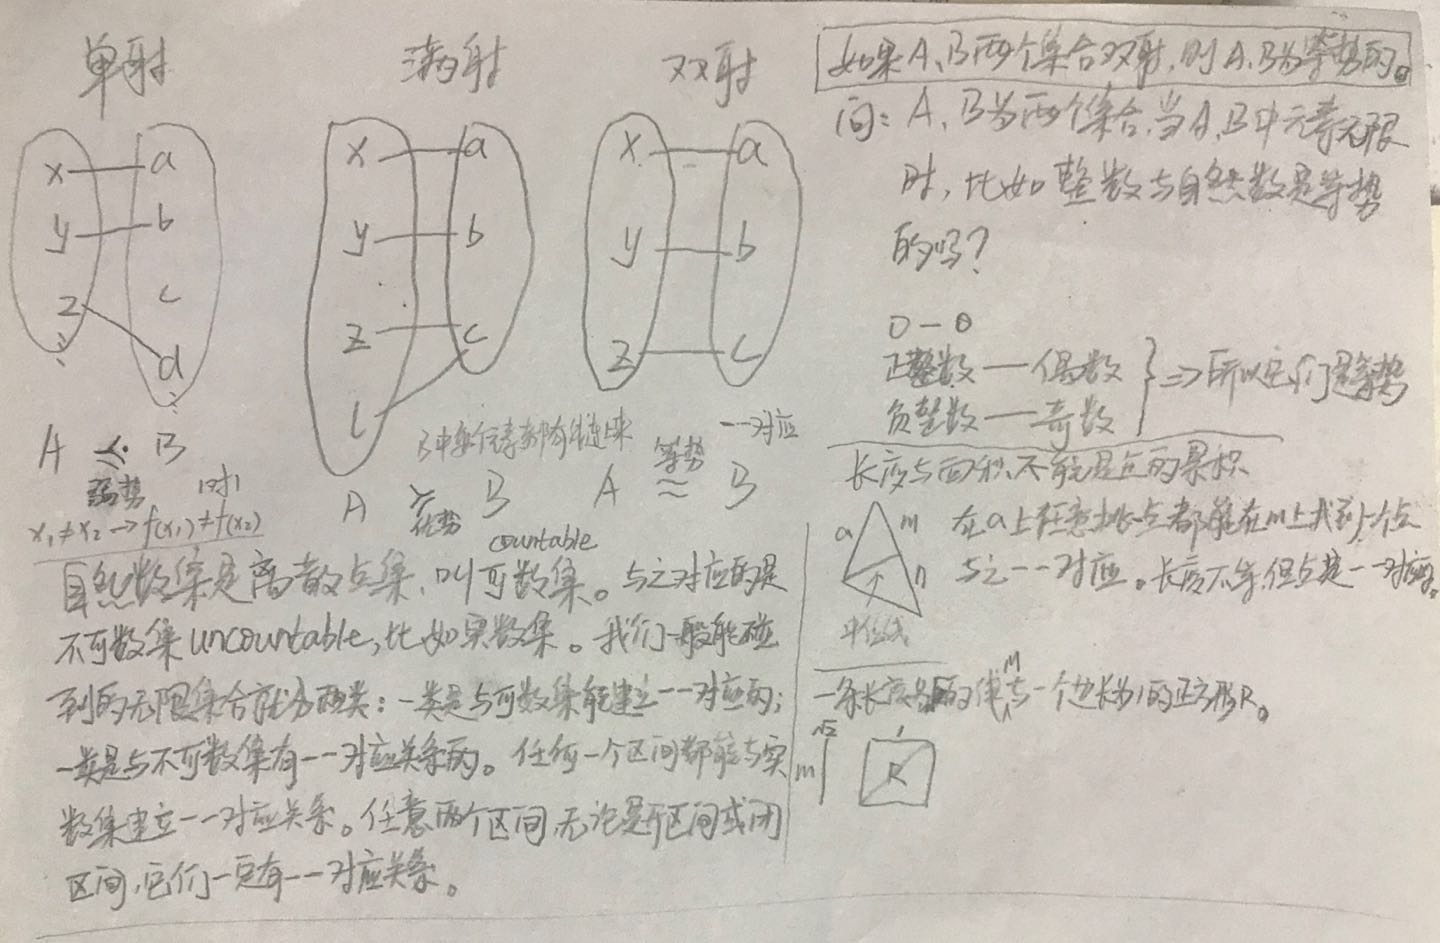 单射
x a
y b
z c
d
A ≼ B
弱势 1对1
x₁≠x₂→f(x₁)≠f(x₂)
满射
x a
y b
z c
l
B中每个元素都有链来
A ≽ B
优势
双射
x a
y b
z c
一一对应
A 等势 ≈ B
countable
自然数集是离散点集,叫可数集。与之对应的是
不可数集uncountable,比如实数集。我们一般能碰
到的无限集合就分两类:一类是与可数集能建立一一对应的;
一类是与不可数集有一一对应关系的。任何一个区间都能与实
数集建立一一对应关系。任意两个区间,无论是开区间或闭
区间,它们一定有一一对应关系。
如果A、B两个集合双射,则A、B为等势的。
问:A、B为两个集合,当A、B中元素无限
时,比如整数与自然数是等势
的吗?
0—0
正整数——偶数
负整数——奇数
⇒所以它们是等势
长度与面积,不能是点的累积
a m n
中位线
在a上任意挑一点都能在m上找到一个点
与之一一对应。长度不等,但点是一一对应的。
一条长度为√2的线m与一个边长为1的正方形R。
√2
m
1
R